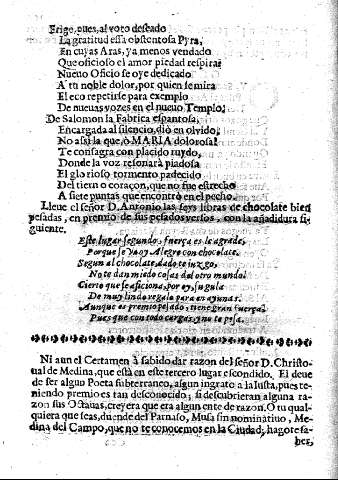 Erige, pues, al voto deseado
La gratitud essa obstentosa Pyra,
En cuyas Aras, ya menos vendado
Que oficioso el amor piedad respira:
Nuevo Oficio se oye dedicado
A tu noble dolor, por quien se mira
El eco repetirse para exemplo
De nuevas vozes en el nuevo Templo.
De Salomon la Fabrica espantosa,
Encargada al silencio, diò en olvido,
No assi la que, ò MARIA dolorosa!
Te consagra con placido ruydo,
Donde la voz resonarà piadosa
El glorioso tormento padecido
Del tierno coraçon, que no fue estrecho
A siete puntas que encontrò en el pecho.
Lleve el señor D. Antonio las seys libras de chocolate bien
pesadas, en premio de sus pesados versos, con la añadidura si-
guiente.
Este lugar segundo, fuerça es le agrade,
Porque se vaya Alegro con chocolate,
Segun al chocolate dado te juzgo,
No te dan miedo cosas del otro mundo:
Cierto que se aficiona, por ser su gula
De muy lindo regalo para en ayunas:
Aunque es premio pesado, tiene gran fuerça,
Pues que con todo cargas, y no te pesa.
Ni aun el Certamen à sabido dar razon del señor D. Christo-
ual de Medina, que està en este tercero lugar escondido. El deue
de ser algun Poeta subterraneo, algun ingrato a la Iusta, pues te-
niendo premio es tan desconocido; si descubrieran alguna ra-
zon sus Octauas, creyera que era algun ente de razon. O tu qual-
quiera que seas, duende del Parnaso, Musa sin nominatiuo, Me-
dina del Campo, que no te conocemos en la Ciudad; hagote sa-
ber,